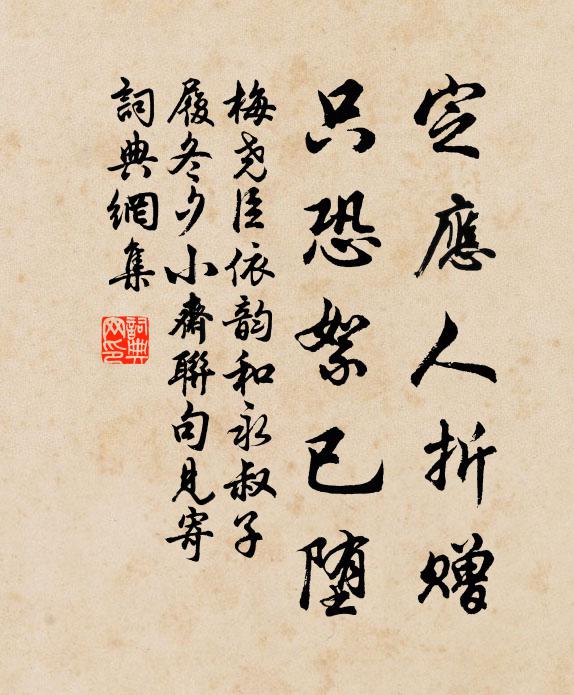 定應人折贈
只恐絮已堕
梅尧臣依韵和永叔子
履冬夕小齋聯句見寄
詞典網集
詞典網印